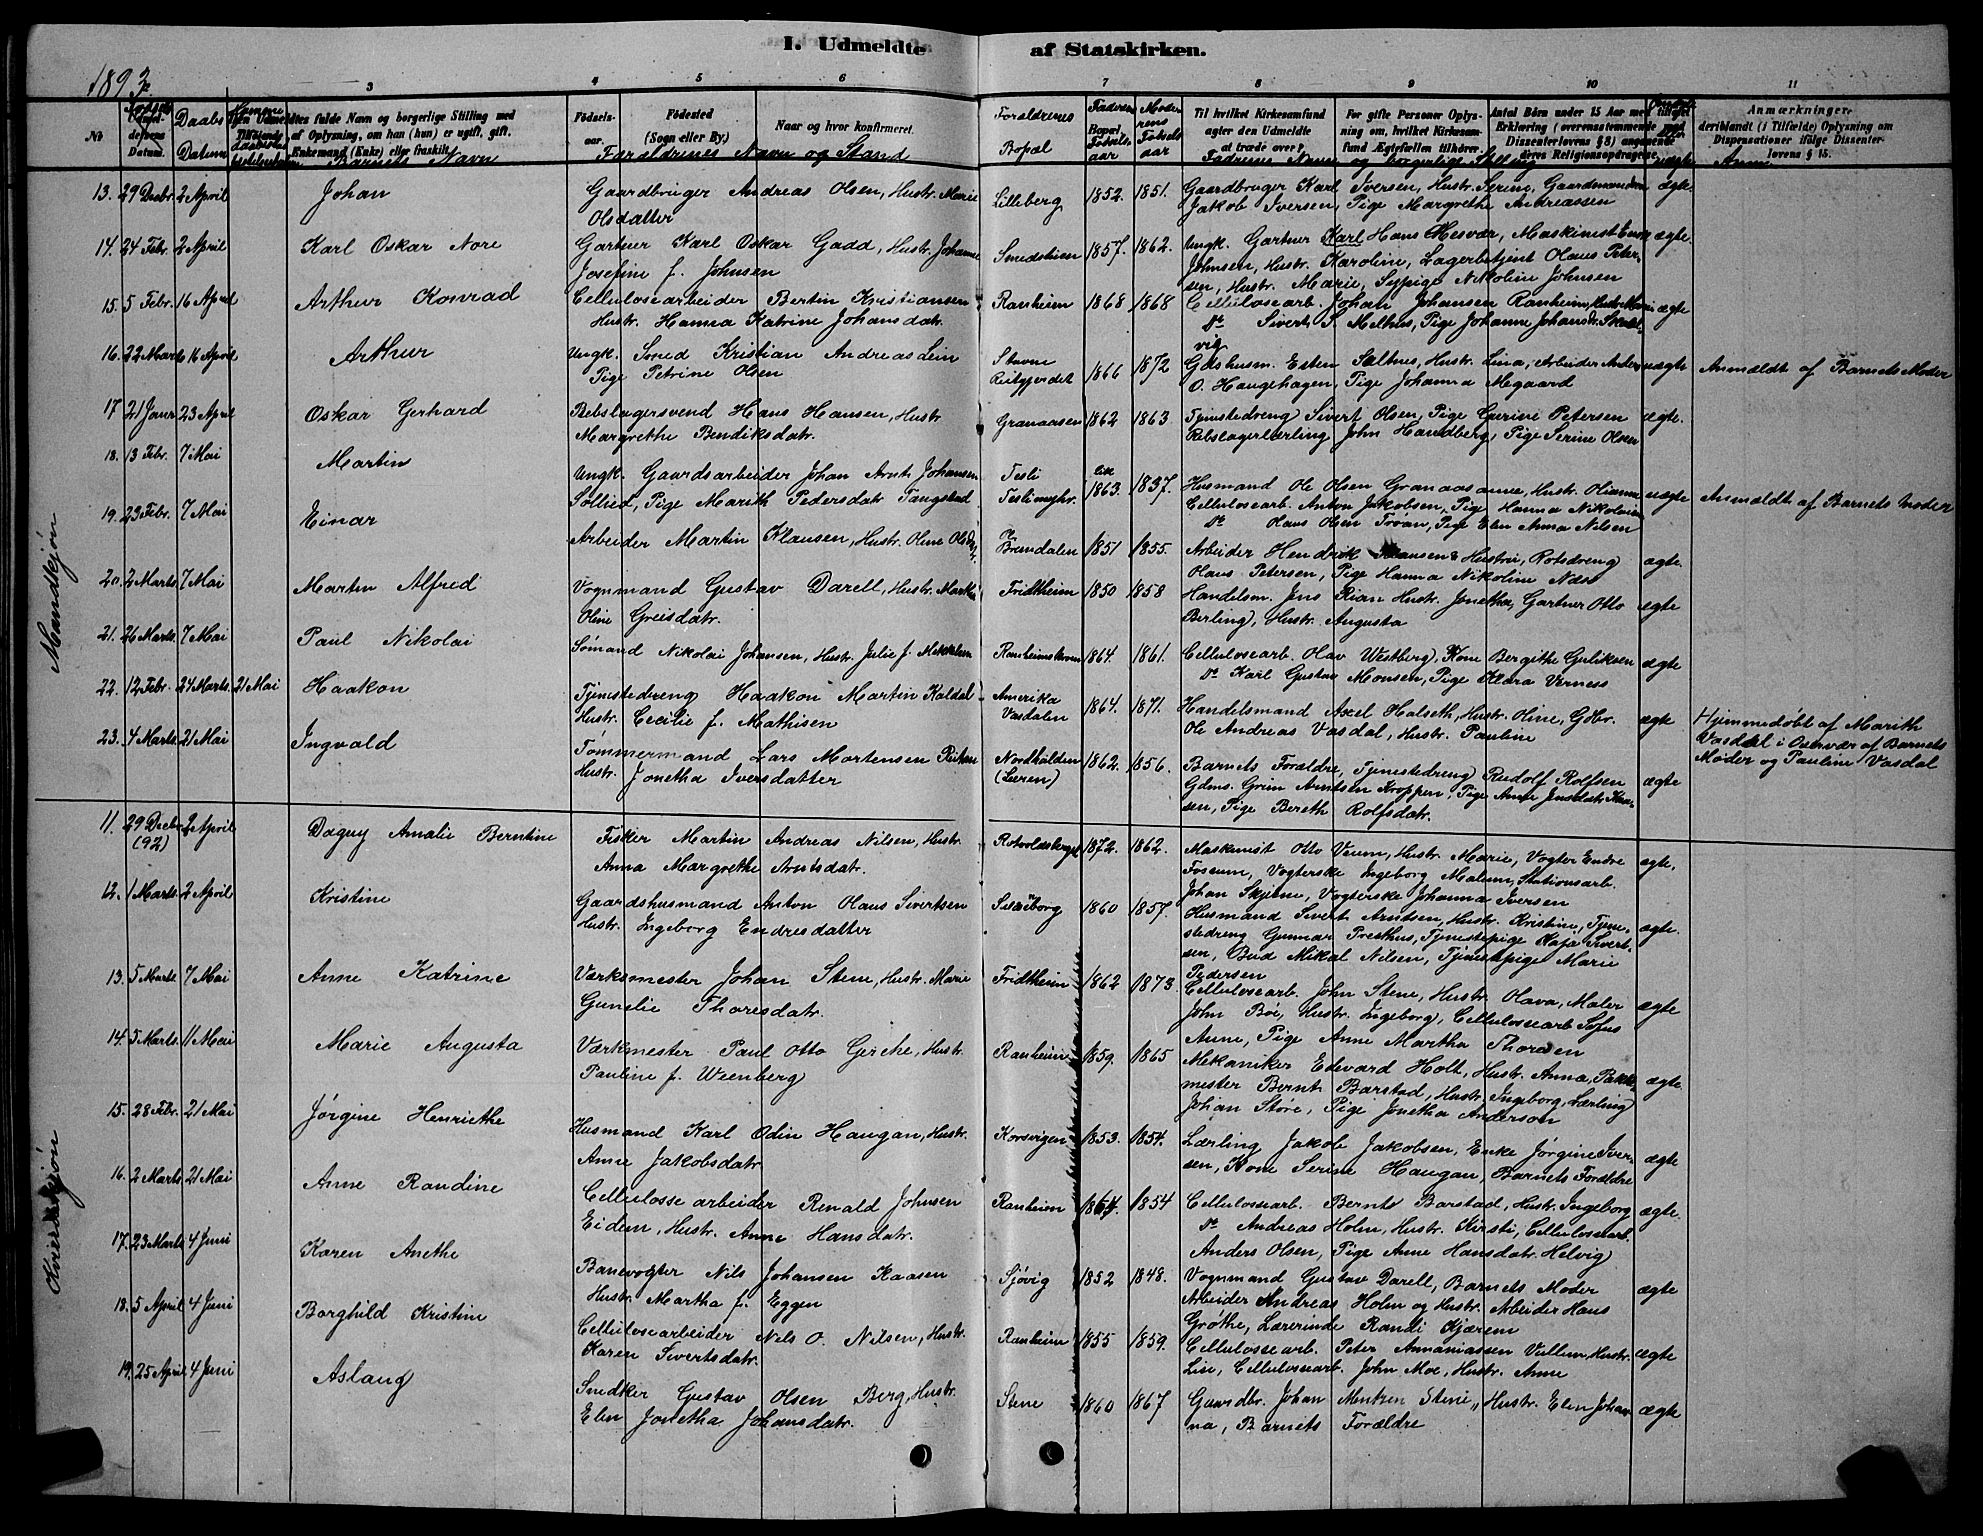 I. Udmeldte af Statskirken.
1893.
3 4 5 6 7 8 9 10 11
No Daabs Datum
des fulde Navn og borgerlige Stilling med
af Oplysning, om han (hun) er ugift, gift,
Enkemand (Enke) eller fraskilt.
Barnets Navn
Födsels-
aar.
Födested
(Sogn eller By.)
Naar og hvor konfirmeret.
Forældrenes Navn og Stand
Forældrenes
Bopæl
Faderens
Fødselsaar
Moderens
Fødselsaar
Til hvilket Kirkesamfund
agter den Udmeldte
at træde over?
For gifte Personer Oplys-
ning om, hvilket Kirkesam-
fund Ægtefællen tilhörer.
Antal Börn under 15 Aar med tilföiet
Erklæring (overensstemmende med
Dissenterlovens § 8) angaaende
deres Religionsopdragelse.
Faddernes Navn og borgerlige Stilling
Anmærkninger
deriblandt (i Tilfælde) Oplysning om
Dispensationer ifølge Dissenter-
lovens § 15.
Mandkjøn
13. 29 Decbr. 2 April Johan
Gaardbruger Andreas Olsen, Hustr. Marie
Olsdatter
Lilleberg 1852. 1851.
Gaardbruger Karl Iversen, Hustr. Serine, Gaardmand
Jakob Iversen, Pige Margrethe Andreassen
ægte
14. 24 Febr. 2 April Karl Oskar Nore
Gartner Karl Oskar Gadd, Hustr. Johanne
Josefine f. Johnsen
Smedstuen 1857. 1862.
Ungk. Gartner Karl Hans Mesvær, Maskinist
Johnsen, Hustr. Karoline, Lagerbetjent Olaus Peter-
sen, Hustr. Marie, Sypige Nikoline Johnsen
ægte.
15. 5 Febr. 16 April Arthur Konrad
Cellulosearbeider Bertin Kristiansen
Hustr. Hanna Katrine Johansdatr.
Ranheim 1868 1868
Cellulosearb. Johan Johansen Ranheim, Hustr.
Do Sivert S. Melhus, Pige Johanne Johansdr. Skaal-
vig
ægte
16. 22 Marts 16 April Arthur
Ungk. Smed Kristian Andreas Lein
Pige Petrine Olsen
Stavne
Reitgjerdet 1866 1872
Gdshusm. Esten Saltnes, Hustr. Lina, Arbeider Anders
O. Haugehagen, Pige Johanna Megaard
uægte
Anmeldt af Barnets Moder
17 21 Janr. 23 April Oskar Gerhard
Rebslagersvend Hans Hansen, Hustr.
Margrethe Bendiksdatr.
Granaasen 1862 1863
Tjenestedreng Sivert Olsen, Pige Gurine Petersen
Rebslagerlærling John Handberg, Pige Serine Olsen
ægte.
18. 13 Febr. 7 Mai Martin
Ungk. Gaardsarbeider Johan Arnt Johansen
Sollied, Pige Marith Pedersdatr. Tangstad
Tesli
Teslimyhr. 1863. 1837.
Husmand Ole Olsen Granaasanne, Hustr. Olianna
Cellulosearb. Anton Jakobsen, Pige Hanna Nikolaisen
Do Olaus Olsen Trøan, Pige Elen Anna Nilsen
uægte
Anmældt af Barnets Moder
19. 23 Febr. 7 Mai Einar
Arbeider Martin Klausen, Hustr. Oline Olsdatr.
Brendalen 1851 1855.
Arbeider Hendrik Klausen & Hustru, Rotsdreng
Olaus Petersen, Pige Hanna Nikoline Næss
ægte.
20. 2 Marts. 7 Mai Martin Alfred
Vognmand Gustav Darell, Hustr. Martha
Oline Greisdatr.
Fridtheim 1850 1858
Handelsm. Jens Rian Hustr. Jonetha, Gartner Otto
Berling, Hustr. Augusta
ægte
21. 26 Marts. 7 Mai Paul Nikolai
Sømand Nikolai Johansen, Hustr. Julie f. Mikkelsen
1864. 1861.
Cellulosearb. Olav Westberg, Kone Bergithe Guliksen
Do Karl Gustav Monsen, Pige Klara Verness
ægte
22. 12 Febr. 24 Marts. 21 Mai Haakon
Tjenestedreng Haakon Martin Kaldal
Hustr. Cecilie f. Mathisen
Amerika
Vasdalen 1864. 1871.
Handelsmand Axel Halseth, Hustr. Oline, Gdbr.
Ole Andreas Vasdal, Hustr. Pauline
ægte
Hjemmedøbt af Marith
Vasdal i Overvær af Barnets
Moder og Pauline Vasdal
23. 4 Marts. 21 Mai Ingvald
Tømmermand Lars Mortensen
Hustr. Jonetha Iversdatter
Nordhalden
(Leren) 1862. 1856.
Barnets Forældre, Tjenestedreng Rudolf Rolfsen
Gdms. Grim Arntsen Kroppen, Pige Anne Jensdatr.
sen, Pige Bereth Rolfsdatr.
ægte
Kvindekjøn
11. 29 Decbr.
(92) 2 April Dagny Amalie Berntine
Fisker Martin Andreas Nilsen, Hustr.
Anna Margrethe Arntsdatr.
Rotvoldsberget 1872. 1862.
Maskinist Otto Veum, Hustr. Marie, Vogter Endre
Fossum, Vogterske Ingeborg Malum, Stationsarb.
Johan Skjetne, Vogterske Johanna Iversen
ægte.
12. 1 Marts. 2 April Kristine
Gaardshusmand Anton Olaus Sivertsen
Hustr. Ingeborg Endresdatter
1860 1857.
Husmand Sivert Arntsen, Hustr. Kristine, Tjene-
stedreng Gunnar Presthus, Tjenestepige Kaja Sivert-
sen, Bud Mikal Nilsen, Tjenestepige Marie
Pedersen
ægte.
13. 5 Marts 7 Mai Anne Katrine
Værksmester Johan Stene, Hustr. Marie
Gunelie Thoresdatr.
Fridtheim 1862 1873.
Cellulosearb. John Stene, Hustr. Olava, Maler
John Bøe, Hustr. Ingeborg, Cellulosearb Sofus
Anne, Pige Anne Martha Thoresen
ægte
14. 5 Marts. 11 Mai Marie Augusta
Værkmester Paul Otto Gerche, Hustr.
Pauline f. Weenberg
Ranheim 1859. 1865
Mekaniker Edevard Holt, Hustr. Anna, Pakk-
mester Bernt Barstad, Hustr. Ingeborg, Lærling
Johan Støre, Pige Jonetha Anderson
ægte.
15. 28 Febr. 21 Mai Jørgine Henriethe
Husmand Karl Odin Haugan, Hustr.
Anne Jakobsdatr.
Korsvigen 1853. 1854.
Lærling Jakob Jakobsen, Enke Jørgine Iver-
sen, Kone Serine Haugan, Barnets Forældre
ægte
16. 2 Marts 21 Mai Anne Randine
Cellulosse arbeider Renald Johnsen
Eidem, Hustr. Anne Hansdatr.
Ranheim 1864. 1854
Cellulosearb. Bernt Barstad, Hustr. Ingeborg
Do Andreas Holm, Hustr. Kirsti, Cellulosearb.
Anders Olsen, Pige Anne Hansdatr. Helvig
ægte.
17. 23 Marts 4 Juni Karen Anethe
Banevogter Nils Johansen Kaasen
Hustr. Martha f. Eggen
Sjøvig 1852 1848.
Vognmand Gustav Darell, Barnets Moder
Arbeider Andreas Holm og Hustr. Arbeider Hans
Grøthe, Lærerinde Randi Kjærem
ægte
18. 5 April 4 Juni Borghild Kristine
Cellulosearbeider Nils O. Nilsen, Hustr.
Karen Sivertsdatr.
Ranheim 1855 1859.
Cellulossearb. Peter Annaniassen Vullum, Hustr.
Lin, Cellulosearb. John Moe, Hustr. Anne
ægte
19. 25 April 4 Juni Aslaug
Snedker Gustav Olsen Berg, Hustr.
Elen Jonetha Johansdatr.
Stene 1860 1867
Gaardbr. Johan Mentzen Stene, Hustr. Elen Johan-
na, Barnets Forældre
ægte